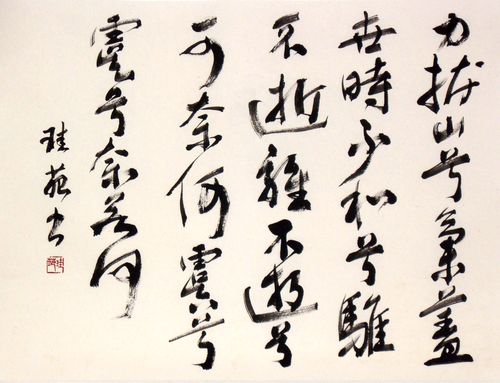 力拔山兮氣蓋
世時不利兮騅
不逝騅不逝兮
可奈何虞兮
虞兮奈若何
珪苑书